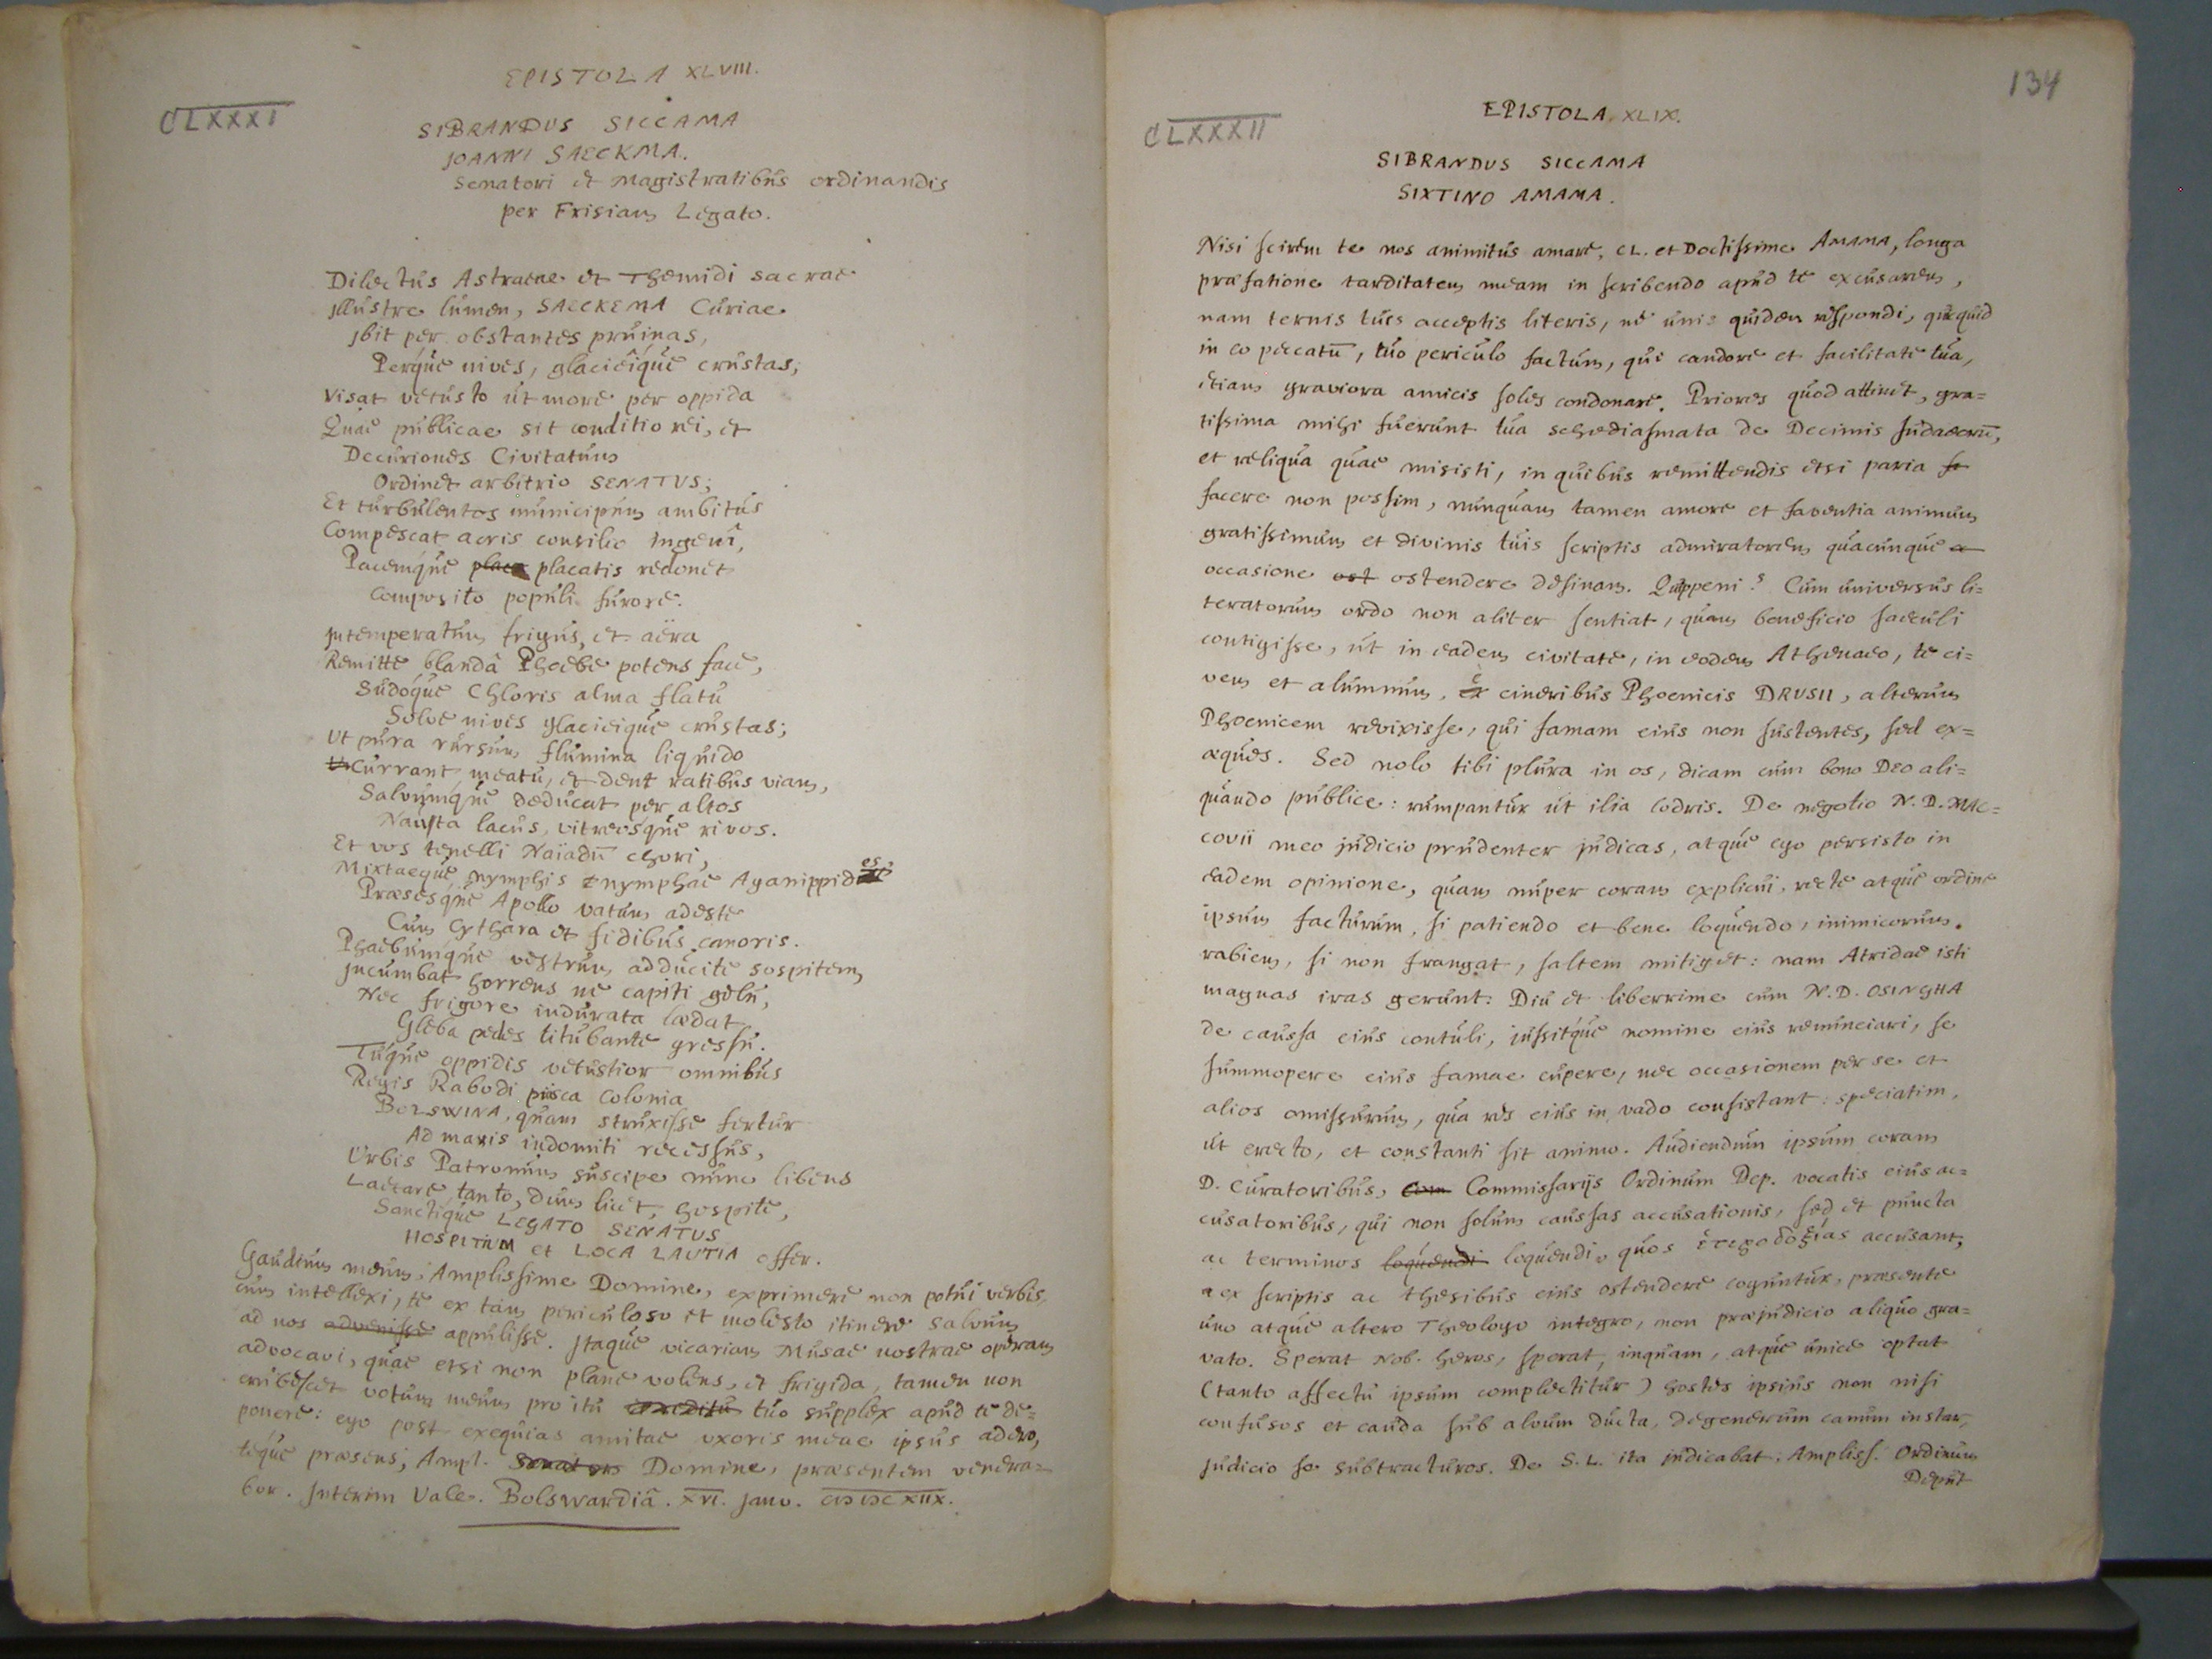 EPISTOLA XLVIII.
CLXXXI
SIBRANDUS SICCAMA
JOANNI SAECKMA.
Senatori et Magistratibus ordinandis
per Frisiam Legato.
Dilectus Astraeae et Themidi sacrae
Jllustre lumen, SAECKEMA Curiae
Jbit per obstantes pruinas,
Perque nives, glacieique crustas;
Visat vetusto ut more per oppida
Quae publicae sit conditio rei, et
Decuriones Civitatum
Ordinet arbitrio SENATUS;
Et turbulentos municipum ambitus
Compescat acris consilio ingenî,
Pacemque placa placatis redonet
Composito populi furore.
Jntemperatum frigus, et aëra
Remitte blandâ Phoebe potens face,
Sudoque Chloris alma flatu
Solve nives glacieique crustas;
Ut pura rursum flumina liquido
Currant meatu, et dent ratibus viam,
Salvumque deducat per altos
Nauta lacus, vitreosque rivos.
Et vos tenelli Naïadū chori,
Mixtaeque nymphis nymphae Aganippides
Praesesque Apollo vatum adeste
Cum Cythara et fidibus canoris.
Phaebumque vestrum adducite sospitem
Jncumbat horrens ne capiti gelu,
Nec frigore indurata laedat
Gleba pedes titubante gressu.
Tuque oppidis vetustior omnibus
Regis Rabodi prisca Colonia
BOLSWINA, quam struxisse fertur
Ad maris indomiti recessus,
Urbis Patronum suscipe nunc libens
Laetare tanto, dum licet, hospite,
Sanctique LEGATO SENATUS
HOSPITIUM et LOCA LAUTIA offer.
Gaudium meum, Amplissime Domine, exprimere non potui verbis,
cum intellexi, te ex tam periculoso et molesto itinere salvum
ad nos advenisse appulisse. Jtaque vicariam Musae nostrae operam
advocavi, quae etsi non plane volens, et frigida, tamen non
erubescet votum meum pro itu tuo supplex apud te de=
ponere: ego post exequias amitae uxoris meae ipsus adero,
teque praesens, Ampl. Senator Domine, praesentem venera=
bor. Jnterim Vale. Bolswardiâ. XVI. Janv. CIƆ IƆC XIIX.
134
EPISTOLA XLIX.
CLXXXII
SIBRANDUS SICCAMA
SIXTINO AMAMA.
Nisi scirem te nos animitus amare, CL. et Doctissime AMAMA, longa
praefatione tarditatem meam in scribendo apud te excusarem,
nam ternis tuis acceptis literis, ne unis quidem respondi, quicquid
in eo peccatū, tuo periculo factum, qui candore et facilitate tua,
etiam graviora amicis soles condonare. Priores quod attinet, gra=
tissima mihi fuerunt tua schediasmata de Decimis Judaeorū,
et reliqua quae misisti, in quibus remittendis etsi paria fa
facere non possim, nunquam tamen amore et faventia animum
gratissimum et divinis tuis scriptis admiratorem quacunque
occasione ost ostendere desinam. Quippeni? Cum universus li=
teratorum ordo non aliter sentiat, quam beneficio saeculi
contigisse, ut in eadem civitate, in eodem Athenaeo, te ci=
vem et alumnum, e cineribus Phoenicis DRUSII, alterum
Phoenicem revixisse, qui famam eius non sustentes, sed ex=
aeques. Sed nolo tibi plura in os, dicam cum bono DEO ali=
quando publice: rumpantur ut ilia Codris. De negotio N. D. MAC=
covii meo judicio prudenter judicas, atque ego persisto in
eadem opinione, quam nuper coram explicui, recte atque ordine
ipsum facturum, si patiendo et bene loquendo, inimicorum
rabiem, si non frangat, saltem mitiget: nam Atridae isti
magnas iras gerunt. Diu et liberrime cum N. D. OSINGHA
de caussa eius contuli, jussitque nomine eius renunciari, se
summopere eius famae cupere, nec occasionem per se et
alios omissurum, qua res eius in vado consistant: speciatim,
ut erecto, et constanti sit animo. Audiendum ipsum coram
D. Curatoribus, Com Commissarijs Ordinum Dep. vocatis eius ac=
cusatoribus, qui non solum caussas accusationis, sed et puncta
ac terminos loquendi loquendi, quos ἑτεροδοξίας accusant,
ex scriptis ac thesibus eius ostendere coguntur, praesente
uno atque altero Theologo integro, non praejudicio aliquo gra=
vato. Sperat Nob. heros, sperat, inquam, atque unice optat
(tanto affectu ipsum complectitur) hostes ipsius non nisi
confusos et cauda sub alvum ducta, degenerum canum instar,
judicio se subtracturos. De S. L. ita judicabat: Ampliss. Ordinum
Deput